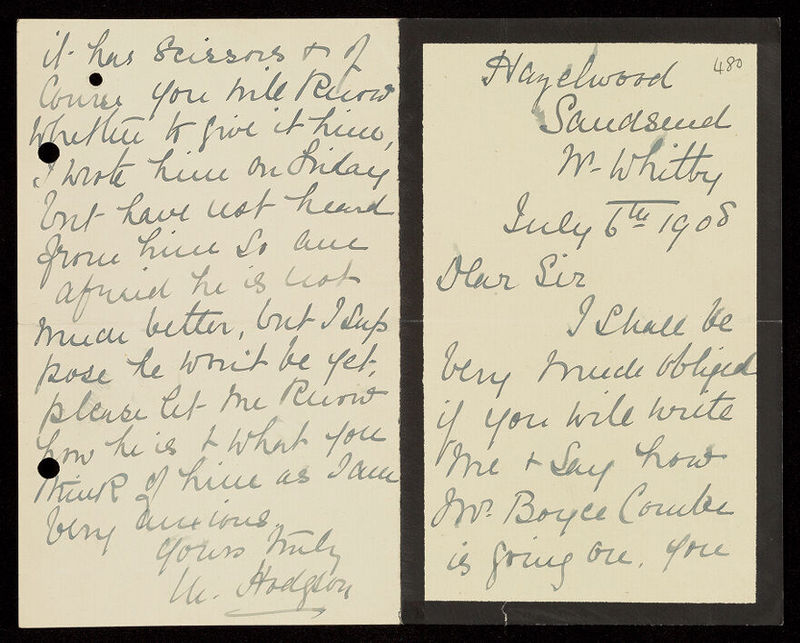 480
Hazelwood
Sandsend
Nr. Whitby
July 6th 1908
Dear Sir
I shall be
very much obliged
if you will write
me & say how
Mr. Boyce Combe
is going on. You
it has scissors & of
course you will know
whether to give it him,
I wrote him on Friday
but have not heard
from him so am
afraid he is not
much better, but I sup
pose he won't be yet,
please let me know
how he is & what you
think of him as I am
very anxious.
Yours truly
M. Hodgson